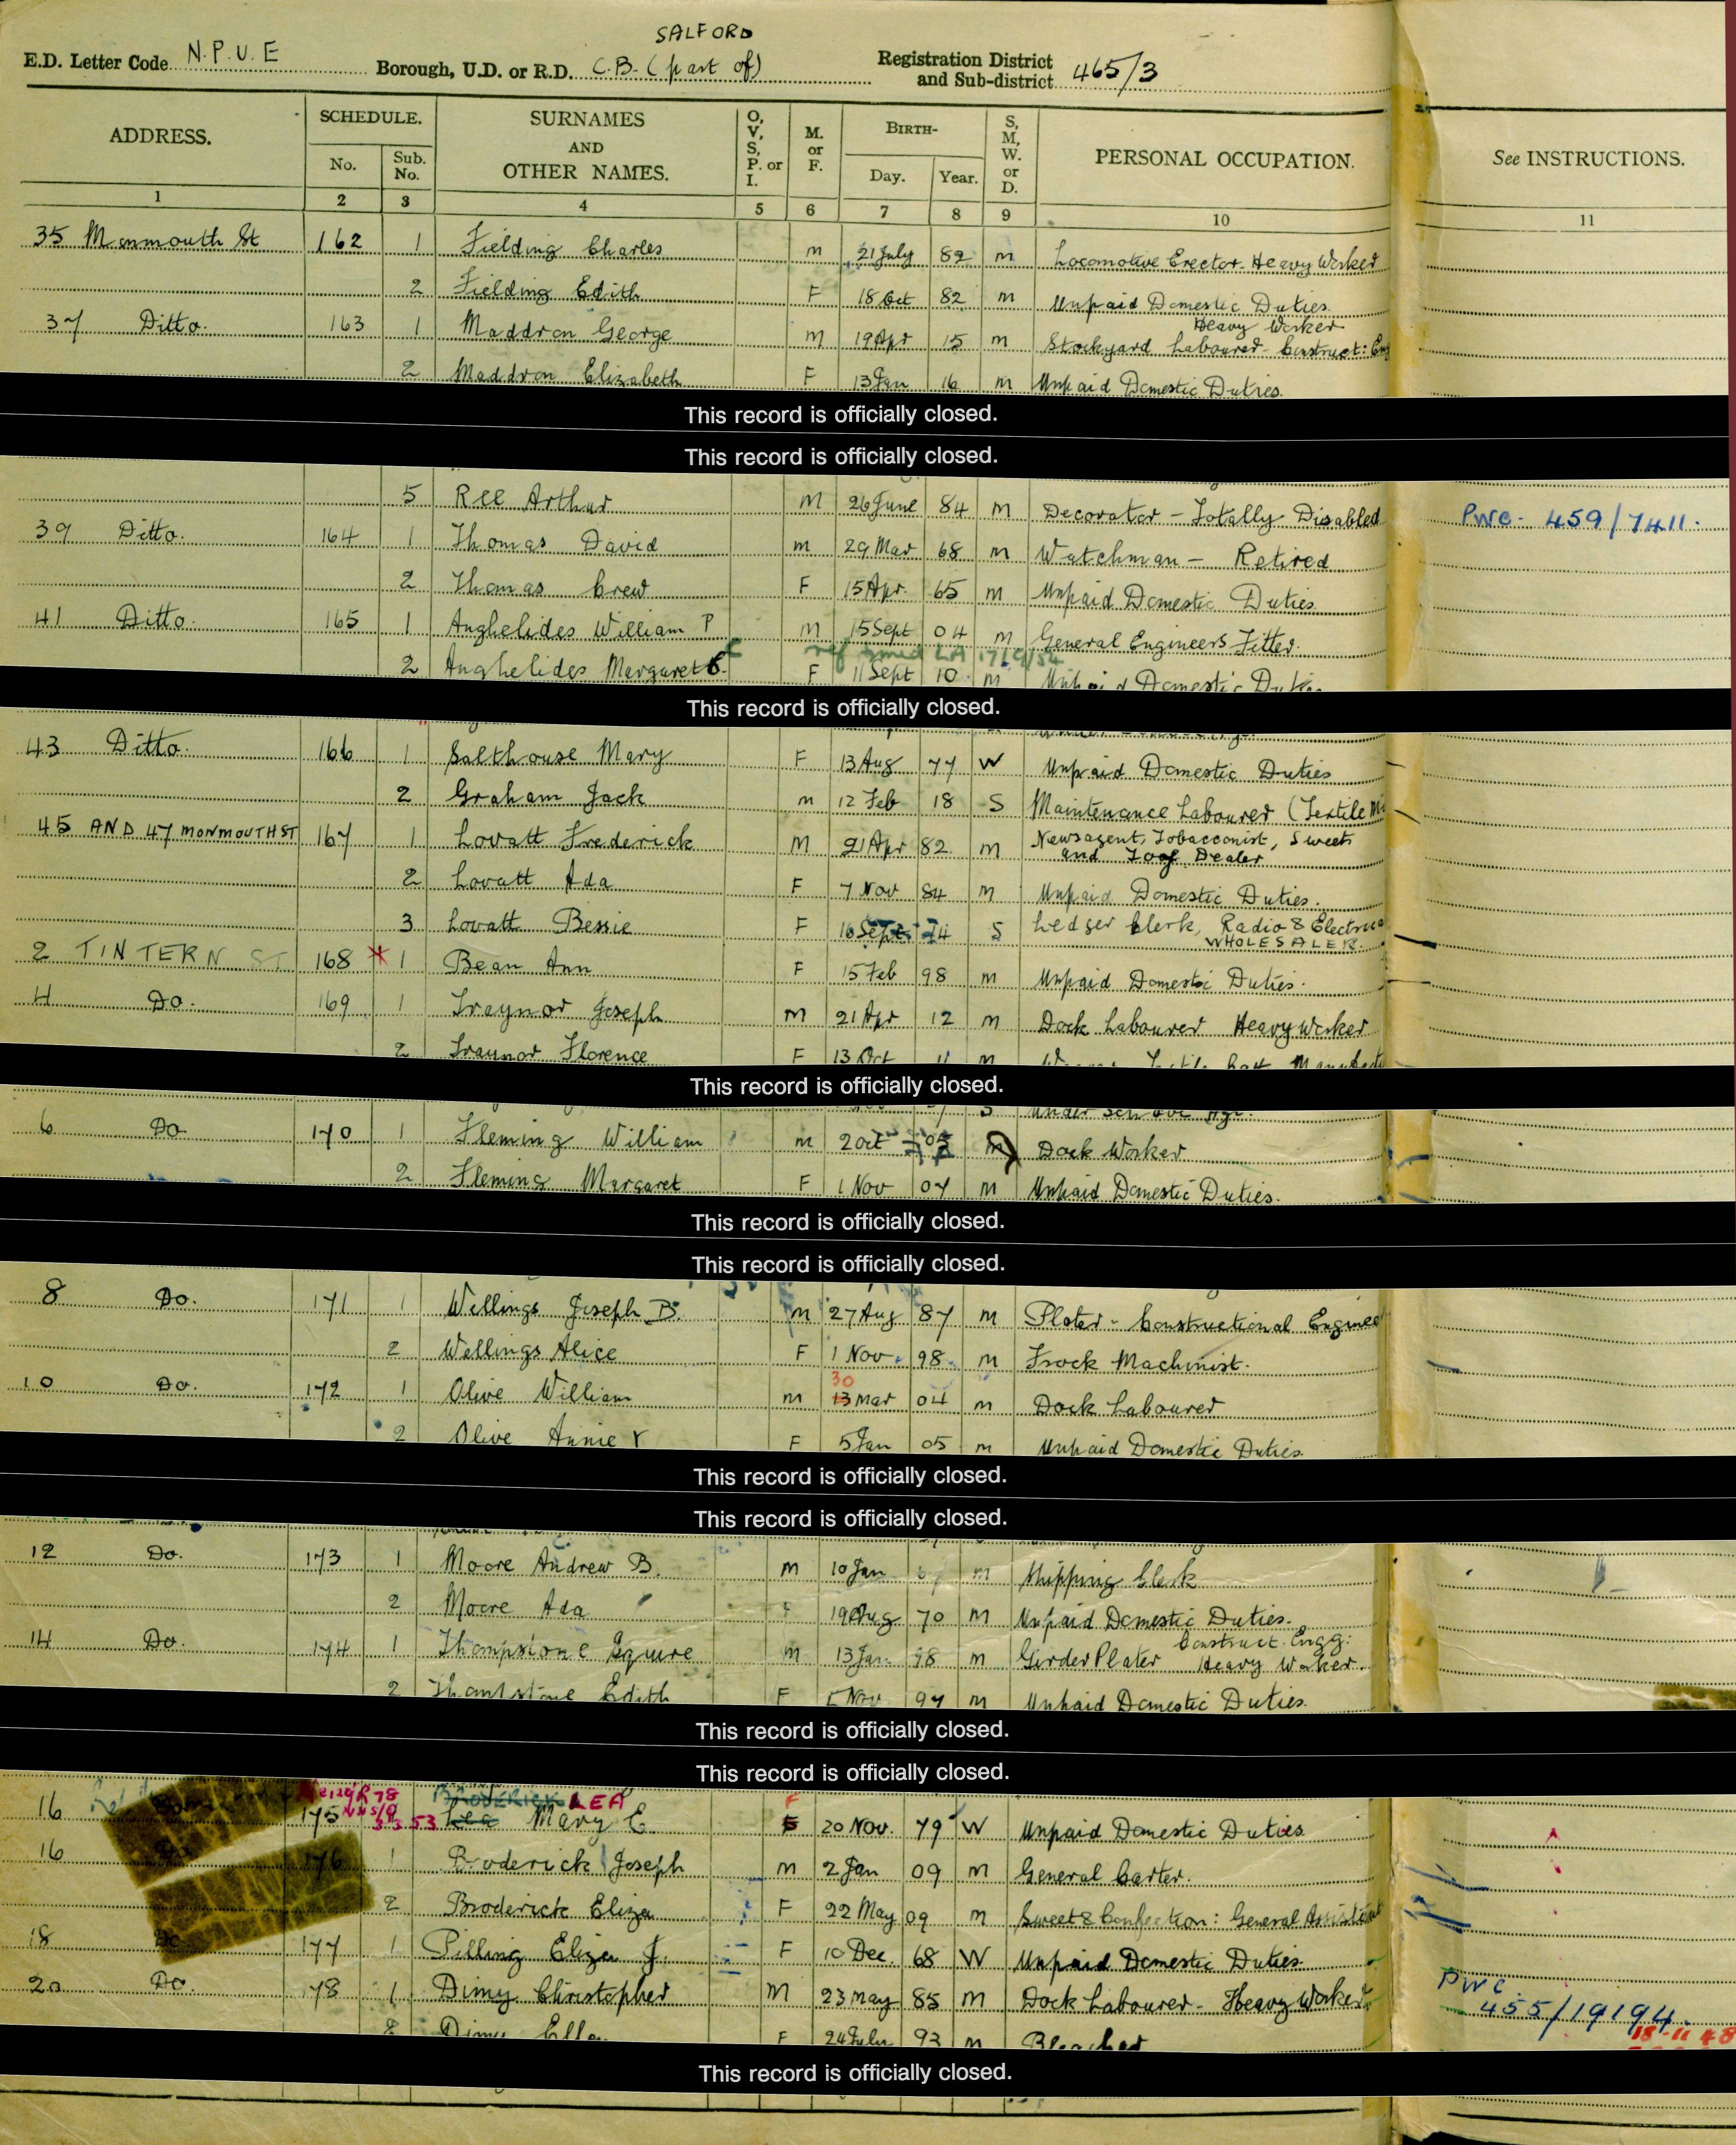 SALFORD
E.D. Letter Code N.P.U.E Borough, U.D. or R.D. C.B. (part of) Registration District and Sub-district 465/3
ADDRESS. SCHEDULE. No. Sub. No. SURNAMES AND OTHER NAMES. O, V, S, P. or I. M. or F. BIRTH- Day. Year. S, M, W. or D. PERSONAL OCCUPATION. See INSTRUCTIONS.
1 2 3 4 5 6 7 8 9 10 11
35 Monmouth St 162 1 Fielding Charles M 21 July 82 M Locomotive Erector. Heavy Worker
2 Fielding Edith F 18 Oct 82 M Unpaid Domestic Duties
Heavy Worker
37 Ditto. 163 1 Maddron George M 19 Apr 15 M Stockyard Labourer - Construct: Eng
2 Maddron Elizabeth F 13 Jan 16 M Unpaid Domestic Duties.
This record is officially closed.
This record is officially closed.
5 Ree Arthur M 26 June 84 M Decorator - Totally Disabled PWC. 459/7411.
39 Ditto. 164 1 Thomas David M 29 Mar 68 M Watchman - Retired
2 Thomas Crew F 15 Apr. 65 M Unpaid Domestic Duties.
41 Ditto. 165 1 Anghelides William P M 15 Sept 04 M General Engineers Fitter.
2 Anghelides Margaret F 11 Sept 10 M Unpaid Domestic Duties
This record is officially closed.
43 Ditto. 166 1 Salthouse Mary F 13 Aug 77 W Unpaid Domestic Duties
2 Graham Jack M 12 Feb 18 S Maintenance Labourer (Textile
45 AND 47 MONMOUTH ST 167 1 Lovatt Frederick M 21 Apr 82 M Newsagent, Tobacconist, Sweets
and Toy Dealer
2 Lovatt Ada F 7 Nov 84 M Unpaid Domestic Duties.
3 Lovatt Bessie F 16 Sept 14 S Ledger Clerk, Radio & Electrical
WHOLESALER.
2 TINTERN ST 168 * 1 Bean Ann F 15 Feb 98 M Unpaid Domestic Duties.
4 Do. 169 1 Traynor Joseph M 21 Apr 12 M Dock Labourer Heavy Worker
2 Traynor Florence F 13 Oct 11 M
This record is officially closed.
S Under School Age.
6 Do 170 1 Fleming William M 2 Oct 05 M Dock Worker
2 Fleming Margaret F 1 Nov 07 M Unpaid Domestic Duties.
This record is officially closed.
This record is officially closed.
8 Do. 171 1 Wellings Joseph B. M 27 Aug 87 M Plater - Constructional Engineer
2 Wellings Alice F 1 Nov. 98. M Frock Machinist.
30
10 Do. 172 1 Olive William M 13 Mar 04 M Dock Labourer
2 Olive Annie F 5 Jan 05 M Unpaid Domestic Duties
This record is officially closed.
This record is officially closed.
12 Do. 173 1 Moore Andrew B. M 10 Jan M Shipping Clerk
2 Moore Ada 19 Aug 70 M Unpaid Domestic Duties.
Construct. Engg:
14 Do. 174 1 Thompstone Squire M 13 Jan 98 M Girder Plater Heavy Worker.
2 Thompstone Edith F Nov 97 M Unpaid Domestic Duties.
This record is officially closed.
This record is officially closed.
BRODERICK LEA
16 175 3.3.53 Lea Mary E F 20 Nov. 79 W Unpaid Domestic Duties
16 Do 176 1 Broderick Joseph M 2 Jan 09 M General Carter.
2 Broderick Eliza F 22 May 09 M Sweet & Confection: General Assistant
18 Do 177 1 Pilling Eliza J. F 10 Dec. 68 W Unpaid Domestic Duties
20 Do. 178 1 Dimy Christopher M 23 May 85 M Dock Labourer - Heavy Worker. PWC 455/19194.
18-11-48
2 Dimy Ellen F 24 July 93 M Bleacher
This record is officially closed.